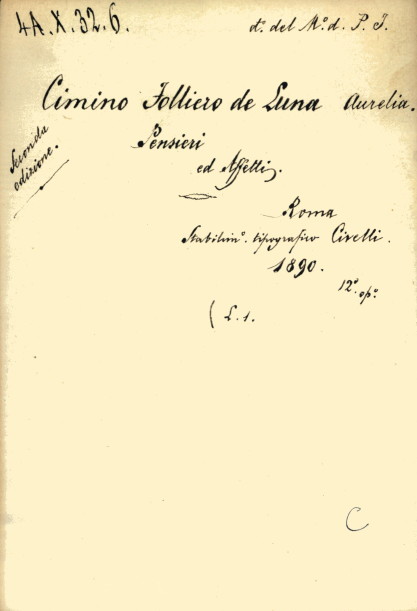 4A.X.32.6.
d.º del M.º d. P. I.
Cimino Folliero de Luna Aurelia.
Seconda
edizione.
Pensieri
ed Affetti.
Roma
Stabilim.º tipografico Civelli.
1890.
12.º op.º
( L. 1.
C